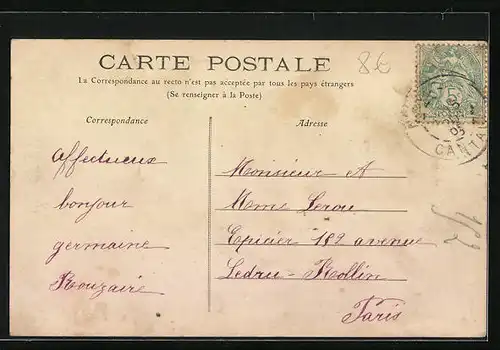 CARTE POSTALE
8€
La Correspondance au recto n'est pas acceptée par tous les pays étrangers
(Se renseigner à la Poste)
5
CANTA
Correspondance
Affectueux
bonjour
germaine
Rouzaire
Adresse
Monsieur et
Mme Lerou
Epicier 189 avenue
Ledru-Rollin
Paris